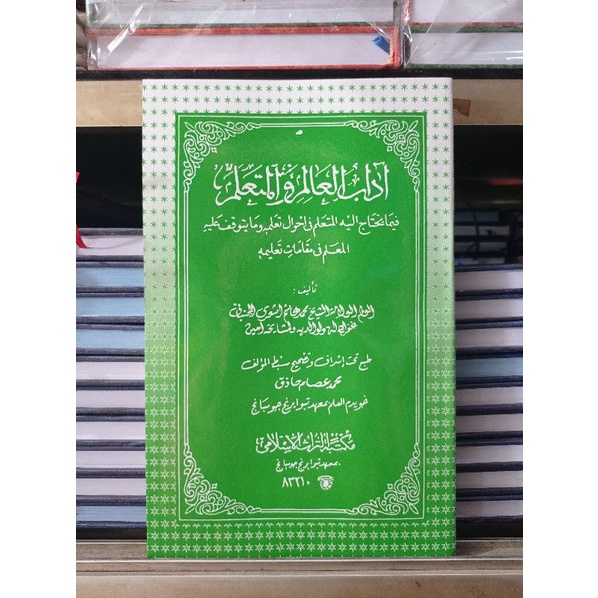 آداب العالم والمتعلم
فيما يحتاج اليه المتعلم في احوال تعلمه وما يتوقف عليه
المعلم في مقامات تعليمه
تأليف :
العالم العلامة الشيخ محمد هاشم اشعري الجنباني
عفا الله له ولوالديه ولمشايخه امين
طبع تحت إشراف وتصحيح سبط المؤلف
محمد عصام حاذق
خويدم العلم بمعهد تبوايرنج جومبانج
مكتبة التراث الإسلامي
بمعهد تبوايرنج جومبانج
٨٣٢١٠